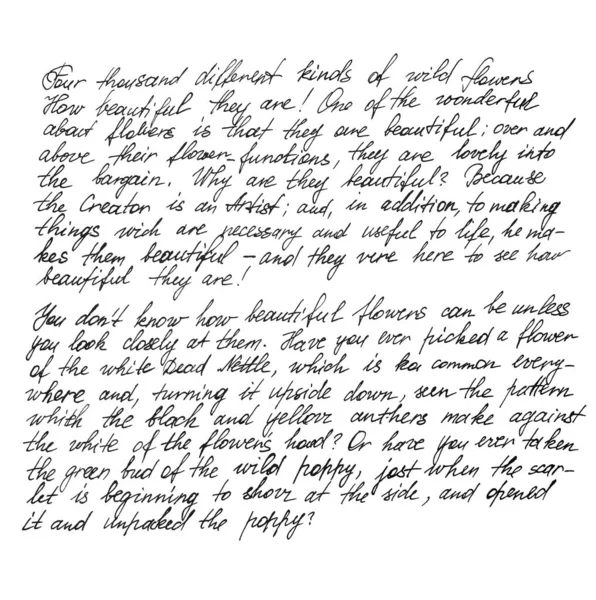 Four thousand different kinds of wild flowers
How beautiful they are! One of the wonderful
about flowers is that they are beautiful; over and
above their flower-functions, they are lovely into
the bargain. Why are they beautiful? Because
the Creator is an Artist; and, in addition, to making
things wich are necessary and useful to life, he ma-
kes them beautiful - and they vere here to see how
beautiful they are!
You don't know how beautiful flowers can be unless
you look closely at them. Have you ever picked a flower
of the white Dead Nettle, which is common every-
where and, turning it upside down, seen the pattern
whith the black and yellow anthers make against
the white of the flowers hood? Or have you ever taken
the green bud of the wild poppy, just when the scar-
let is beginning to show at the side, and opened
it and unpacked the poppy?